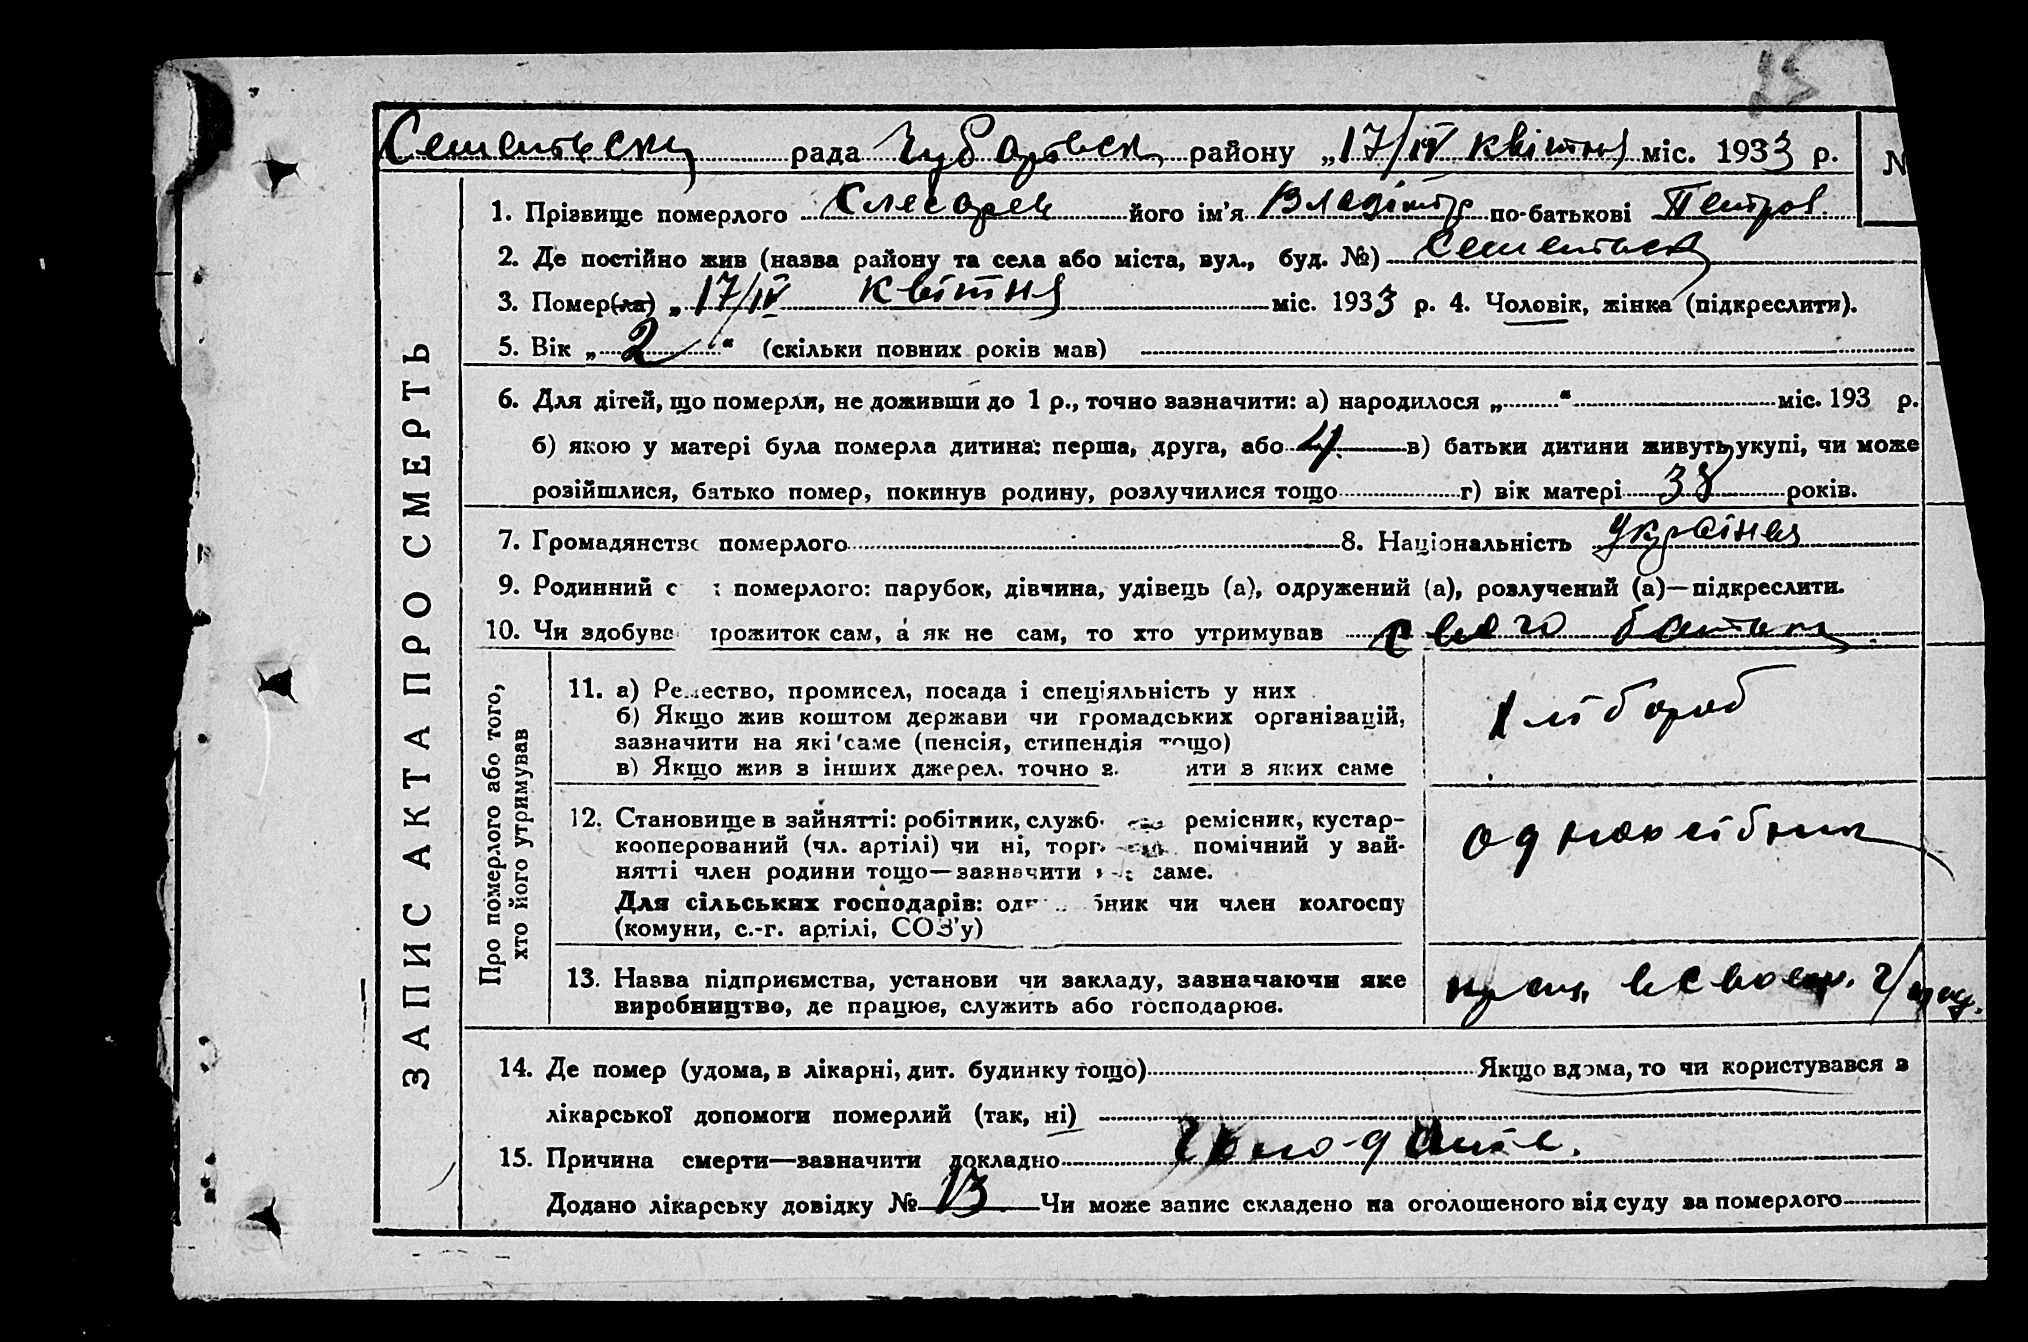 рада Чубарівськ району „17/IV квітня міс. 1933 р.
N
1. Прізвище померлого Слесарен його ім'я Владімір по-батькові Петров.
2. Де постійно жив (назва району та села або міста, вул., буд. №)
3. Помер(ла) „17/IV квітня міс. 1933 р. 4. Чоловік, жінка (підкреслити).
5. Вік „2“ (скільки повних років мав)
6. Для дітей, що померли, не доживши до 1 р., точно зазначити: а) народилося „ “ міс. 193 р.
б) якою у матері була померла дитина: перша, друга, або 4. в) батьки дитини живуть укупі, чи може
розійшлися, батько помер, покинув родину, розлучилися тощо г) вік матері 38 років.
7. Громадянство померлого 8. Національність україньц
9. Родинний с померлого: парубок, дівчина, удівець (а), одружений (а), розлучений (а)—підкреслити.
10. Чи здобував прожиток сам, а як не сам, то хто утримував свого батька
ЗАПИС АКТА ПРО СМЕРТЬ
Про померлого або того,
хто його утримував
11. а) Ремество, промисел, посада і спеціяльність у них
б) Якщо жив коштом держави чи громадських організацій,
зазначити на які саме (пенсія, стипендія тощо)
в) Якщо жив з інших джерел, точно з ити з яких саме
хлібороб
12. Становище в зайнятті: робітник, служб ремісник, кустар-
кооперований (чл. артілі) чи ні, торг помічний у зай-
нятті член родини тощо—зазначити саме.
Для сільських господарів: одн бник чи член колгоспу
(комуни, с.-г. артілі, СОЗ'у)
одноосібник
13. Назва підприємства, установи чи закладу, зазначаючи яке
виробництво, де працює, служить або господарює.
прац. в своєму
14. Де помер (удома, в лікарні, дит. будинку тощо) Якщо вдома, то чи користувався з
лікарської допомоги померлий (так, ні)
15. Причина смерти—зазначити докладно
Додано лікарську довідку № 13 Чи може запис складено на оголошеного від суду за померлого